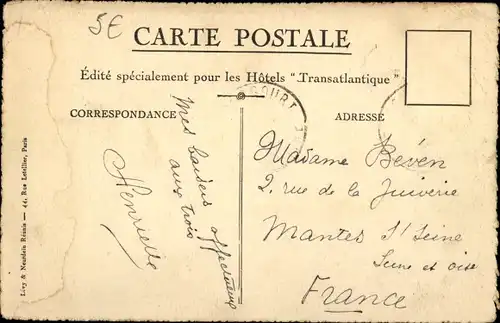 5€
CARTE POSTALE
Édité spécialement pour les Hôtels "Transatlantique"
CORRESPONDANCE
ADRESSE
Mes baisers affectueux
aux trois
Henriette
Madame Béven
2, rue de la Juiverie
Mantes S/ Seine
Seine et Oise
France
Lévy & Neurdein Réunis — 44, Rue Letellier, Paris